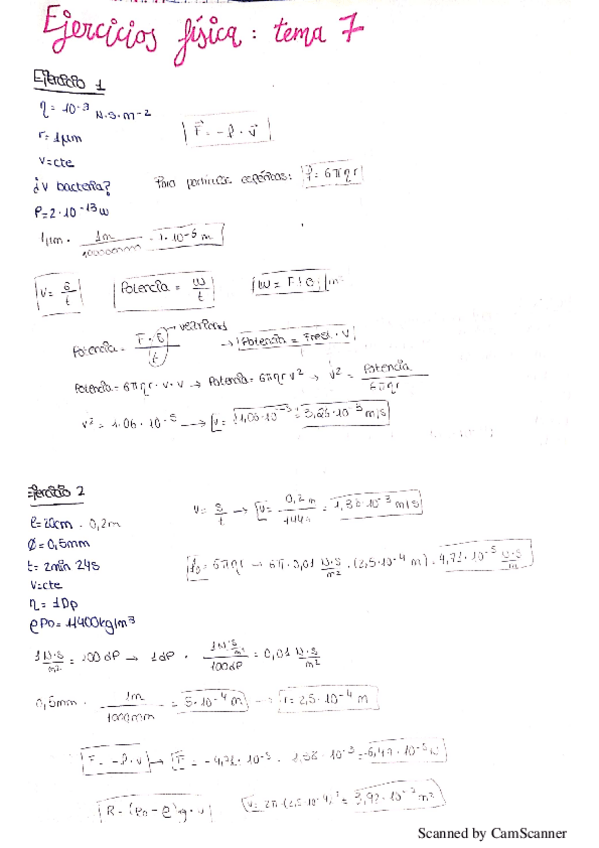 Ejercicios física: tema 7
Ejercicio 1
η = 10⁻³ N·s·m⁻²
r = 1μm
v = cte
¿v bacteria?
P = 2·10⁻¹³ w
F = -f · v
Para partículas esféricas: f = 6πηr
1μm · 1m / 1000000mm
v = e/t
Potencia = W/t
Potencia = F · e / t → vectores → Potencia = Fres · v
Potencia = 6πηr · v · v → Potencia = 6πηr v² → v² = Potencia / 6πηr
v² = 1.06 · 10⁻⁵
m/s
Ejercicio 2
l = 20cm = 0,2m
Ø = 0,5mm
t = 2min 24s
v = cte
η = 1 Dp
ρp0 = 11400 kg/m³
v = s/t → v = 0,2 m / 144s = 1,38 · 10⁻³ m/s
f = 6πηr → 6π · 0,01 N·s/m² · (2,5·10⁻⁴ m) = 4,71 · 10⁻⁵ N·s/m
1 N·s/m² = 100 dP → 1 dP · 1 N·s/m² / 100 dP = 0,01 N·s/m²
0,5mm · 1m / 1000mm = 5·10⁻⁴ m → r = 2,5·10⁻⁴ m
F = -f · v → F = -4,71 · 10⁻⁵ · 1,38 · 10⁻³ = -6,47 · 10⁻⁸ N
Scanned by CamScanner